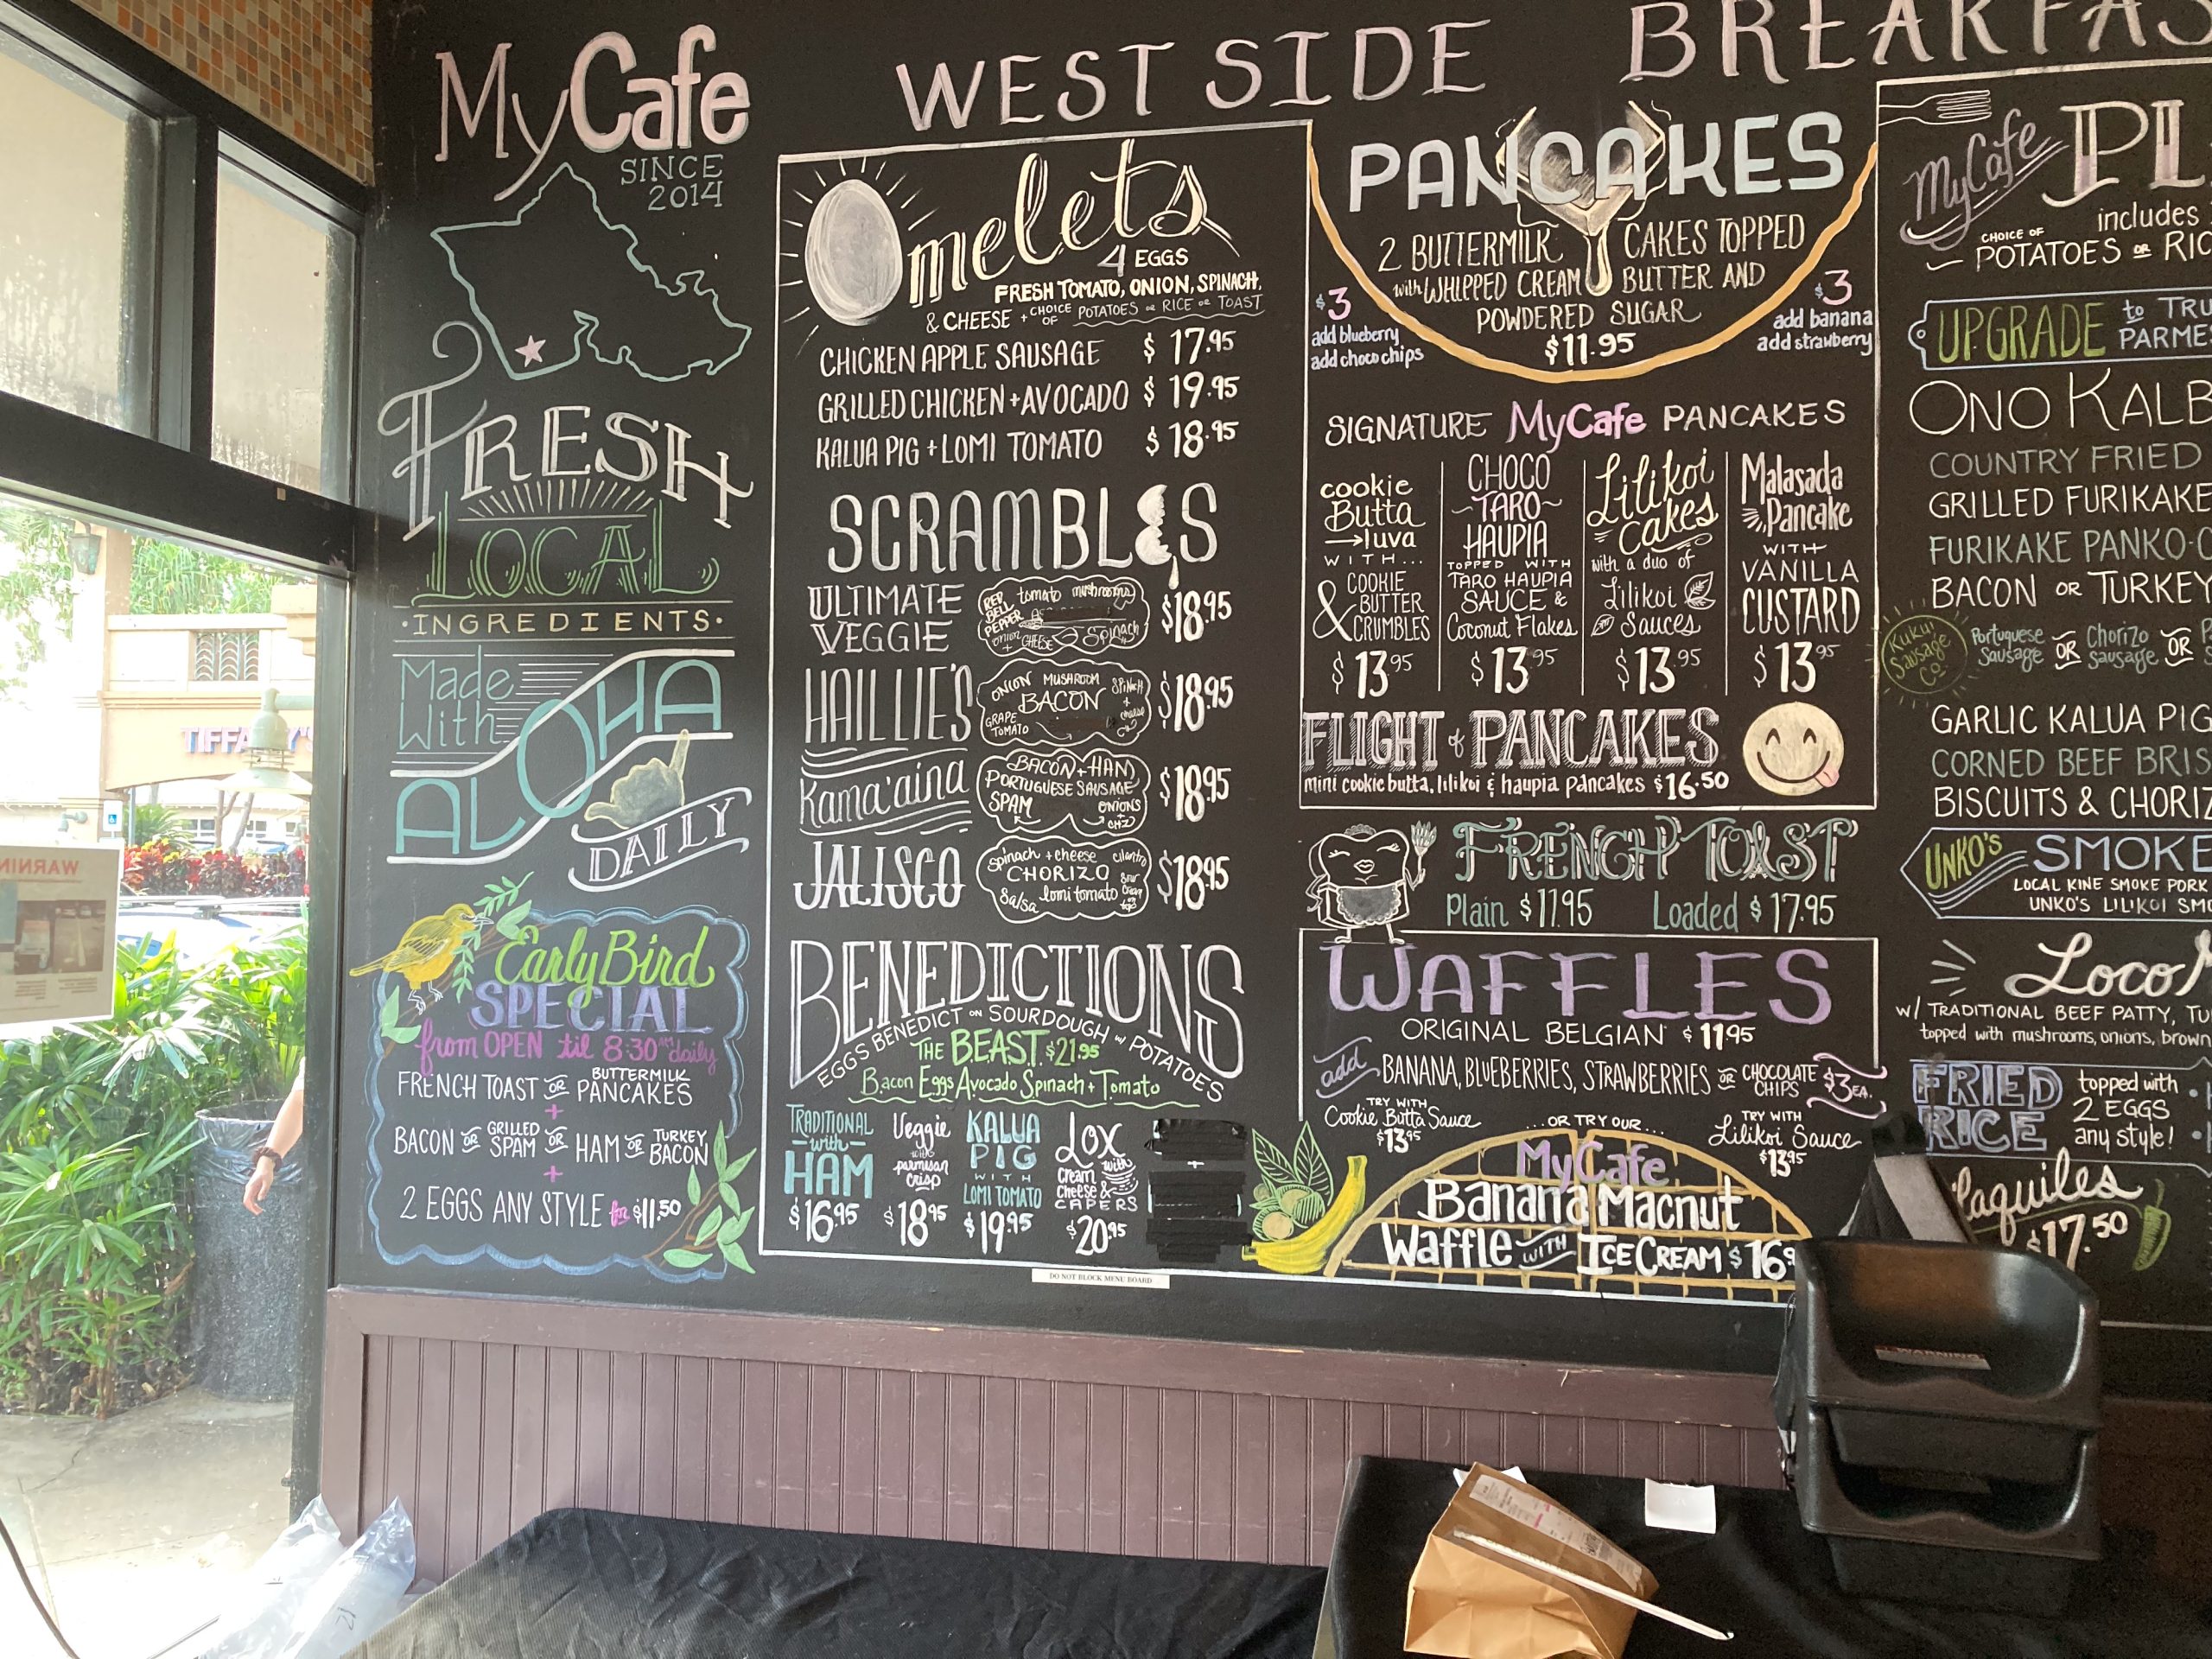 MyCafe
SINCE
2014
FRESH
LOCAL
·INGREDIENTS·
Made
With
ALOHA
DAILY
Early Bird
SPECIAL
from OPEN til 8:30AM daily
FRENCH TOAST OR BUTTERMILK PANCAKES
+
BACON OR GRILLED SPAM OR HAM OR TURKEY BACON
+
2 EGGS ANY STYLE for $11.50
WEST SIDE BREAKFAS
Omelets
4 EGGS
FRESH TOMATO, ONION, SPINACH,
& CHEESE + CHOICE OF POTATOES OR RICE OR TOAST
CHICKEN APPLE SAUSAGE $17.95
GRILLED CHICKEN + AVOCADO $19.95
KALUA PIG + LOMI TOMATO $18.95
SCRAMBLES
ULTIMATE VEGGIE
RED BELL PEPPER tomato mushrooms
onion + CHEESE Spinach
$18.95
HAILLIE'S
ONION MUSHROOM SPINACH
BACON + cheese
GRAPE TOMATO
$18.95
Kama'aina
BACON + HAM
PORTUGUESE SAUSAGE
SPAM ONIONS + CHZ
$18.95
JALISCO
Spinach + cheese cilantro
CHORIZO
Salsa lomi tomato sour cream
$18.95
BENEDICTIONS
EGGS BENEDICT ON SOURDOUGH W/ POTATOES
THE BEAST $21.95
Bacon Eggs Avocado Spinach + Tomato
TRADITIONAL with HAM $16.95
Veggie with parmisan crisp $18.95
KALUA PIG WITH LOMI TOMATO $19.95
LOX with cream cheese & CAPERS $20.95
DO NOT BLOCK MENU BOARD
PANCAKES
2 BUTTERMILK CAKES TOPPED
with WHIPPED CREAM BUTTER AND
POWDERED SUGAR
$11.95
$3
add blueberry
add choco chips
$3
add banana
add strawberry
SIGNATURE MyCafe PANCAKES
cookie Butta luva
WITH...
& COOKIE BUTTER CRUMBLES
$13.95
CHOCO ~TARO~ HAUPIA
TOPPED WITH
TARO HAUPIA SAUCE &
Coconut Flakes
$13.95
Lilikoi Cakes
with a duo of
Lilikoi Sauces
$13.95
Malasada Pancake
WITH
VANILLA CUSTARD
$13.95
FLIGHT of PANCAKES
mini cookie butta, lilikoi & haupia pancakes $16.50
FRENCH TOAST
Plain $11.95 Loaded $17.95
WAFFLES
ORIGINAL BELGIAN $11.95
add BANANA, BLUEBERRIES, STRAWBERRIES OR CHOCOLATE CHIPS $3 EA.
TRY WITH
Cookie Butta Sauce
$13.95
...OR TRY OUR...
TRY WITH
Lilikoi Sauce
$13.95
MyCafe
Banana Macnut
Waffle WITH ICE CREAM $16.9
MyCafe PL
includes
CHOICE OF
POTATOES OR RIC
UPGRADE to TRU
PARME
ONO KALB
COUNTRY FRIED
GRILLED FURIKAKE
FURIKAKE PANKO-C
BACON OR TURKEY
Kukui Sausage Co.
Portuguese Sausage OR Chorizo Sausage OR
GARLIC KALUA PIG
CORNED BEEF BRIS
BISCUITS & CHORIZ
UNKO'S SMOKE
LOCAL KINE SMOKE PORK
UNKO'S LILIKOI SMO
LOCO M
W/ TRADITIONAL BEEF PATTY, TU
topped with mushrooms, onions, brown
FRIED RICE
topped with
2 EGGS
any style!
laquiles
$17.50
TIFFANY'S
WARNIN
WARNING